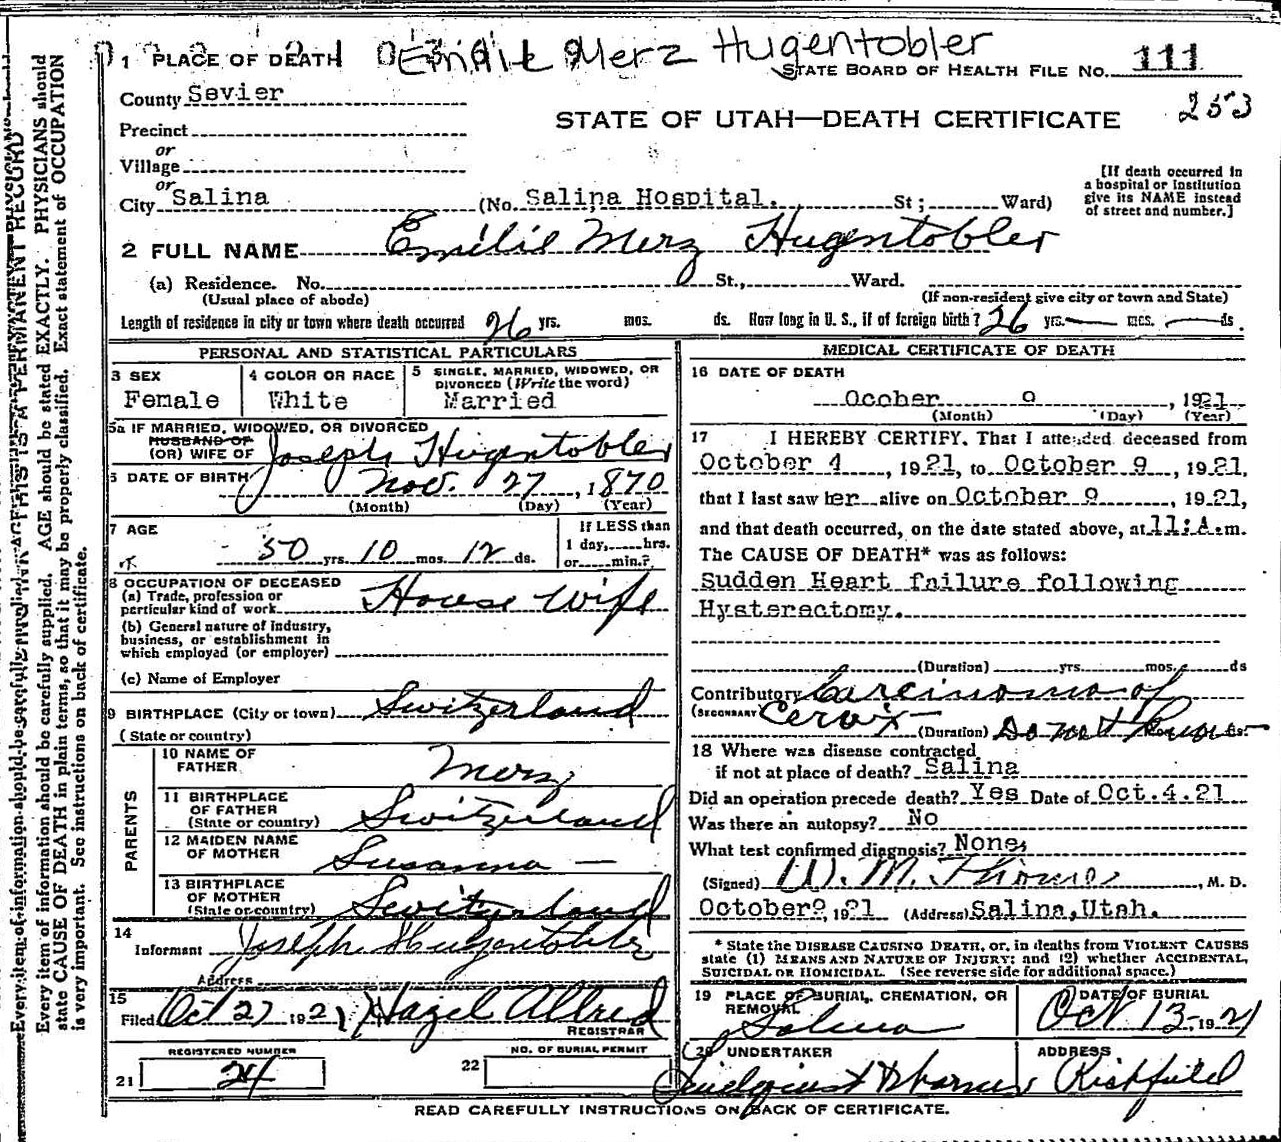 Emilie Merz Hugentobler
1 PLACE OF DEATH
STATE BOARD OF HEALTH FILE NO. 111
253
County Sevier
STATE OF UTAH—DEATH CERTIFICATE
Precinct
or
Village
or
City Salina (No. Salina Hospital. St; Ward)
[If death occurred in
a hospital or institution
give its NAME instead
of street and number.]
2 FULL NAME Emilie Merz Hugentobler
(a) Residence. No. St., Ward.
(Usual place of abode) (If non-resident give city or town and State)
Length of residence in city or town where death occurred 26 yrs. mos. ds. How long in U. S., if of foreign birth? 26 yrs — mos. — ds.
PERSONAL AND STATISTICAL PARTICULARS
3 SEX
Female
4 COLOR OR RACE
White
5 SINGLE, MARRIED, WIDOWED, OR
DIVORCED (Write the word)
Married
5a IF MARRIED, WIDOWED, OR DIVORCED
HUSBAND OF
(OR) WIFE OF Joseph Hugentobler
6 DATE OF BIRTH Nov. 27, 1870
(Month) (Day) (Year)
7 AGE
50 yrs. 10 mos. 12 ds.
If LESS than
1 day, hrs.
or min.?
8 OCCUPATION OF DECEASED
(a) Trade, profession or
particular kind of work House Wife
(b) General nature of industry,
business, or establishment in
which employed (or employer)
(c) Name of Employer
9 BIRTHPLACE (City or town) Switzerland
(State or country)
PARENTS
10 NAME OF
FATHER Merz
11 BIRTHPLACE
OF FATHER
(State or country) Switzerland
12 MAIDEN NAME
OF MOTHER Susanna —
13 BIRTHPLACE
OF MOTHER
(State or country) Switzerland
14
Informant Joseph Hugentobler
Address
15
Filed Oct 27 1921 Hazel Allred
REGISTRAR
REGISTERED NUMBER
21 24
NO. OF BURIAL PERMIT
22
MEDICAL CERTIFICATE OF DEATH
16 DATE OF DEATH
Ocober 9, 1921
(Month) (Day) (Year)
17 I HEREBY CERTIFY, That I attended deceased from
October 4, 1921, to October 9, 1921,
that I last saw her alive on October 9, 1921,
and that death occurred, on the date stated above, at 11:A.m.
The CAUSE OF DEATH* was as follows:
Sudden Heart failure following
Hysterectomy.
(Duration) yrs. mos. ds
Contributory Carcinoma of
(SECONDARY Cervix (Duration) ds.
18 Where was disease contracted
if not at place of death? Salina
Did an operation precede death? Yes Date of Oct.4.21
Was there an autopsy? No
What test confirmed diagnosis? None
(Signed) W. M. Thomas, M. D.
October 9, 1921 (Address) Salina, Utah.
* State the DISEASE CAUSING DEATH, or, in deaths from VIOLENT CAUSES
state (1) MEANS AND NATURE OF INJURY; and (2) whether ACCIDENTAL,
SUICIDAL OR HOMICIDAL. (See reverse side for additional space.)
19 PLACE OF BURIAL, CREMATION, OR
REMOVAL
Salina
DATE OF BURIAL
Oct 13- 1921
20 UNDERTAKER
ADDRESS
Richfield
READ CAREFULLY INSTRUCTIONS ON BACK OF CERTIFICATE.
Every item of information should be carefully supplied. AGE should be stated EXACTLY. PHYSICIANS should
state CAUSE OF DEATH in plain terms, so that it may be properly classified. Exact statement of OCCUPATION
is very important. See instructions on back of certificate.